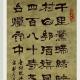 千里鶯啼綠映紅
水村山郭酒旗風
南朝四百八十寺
多少樓臺煙雨中